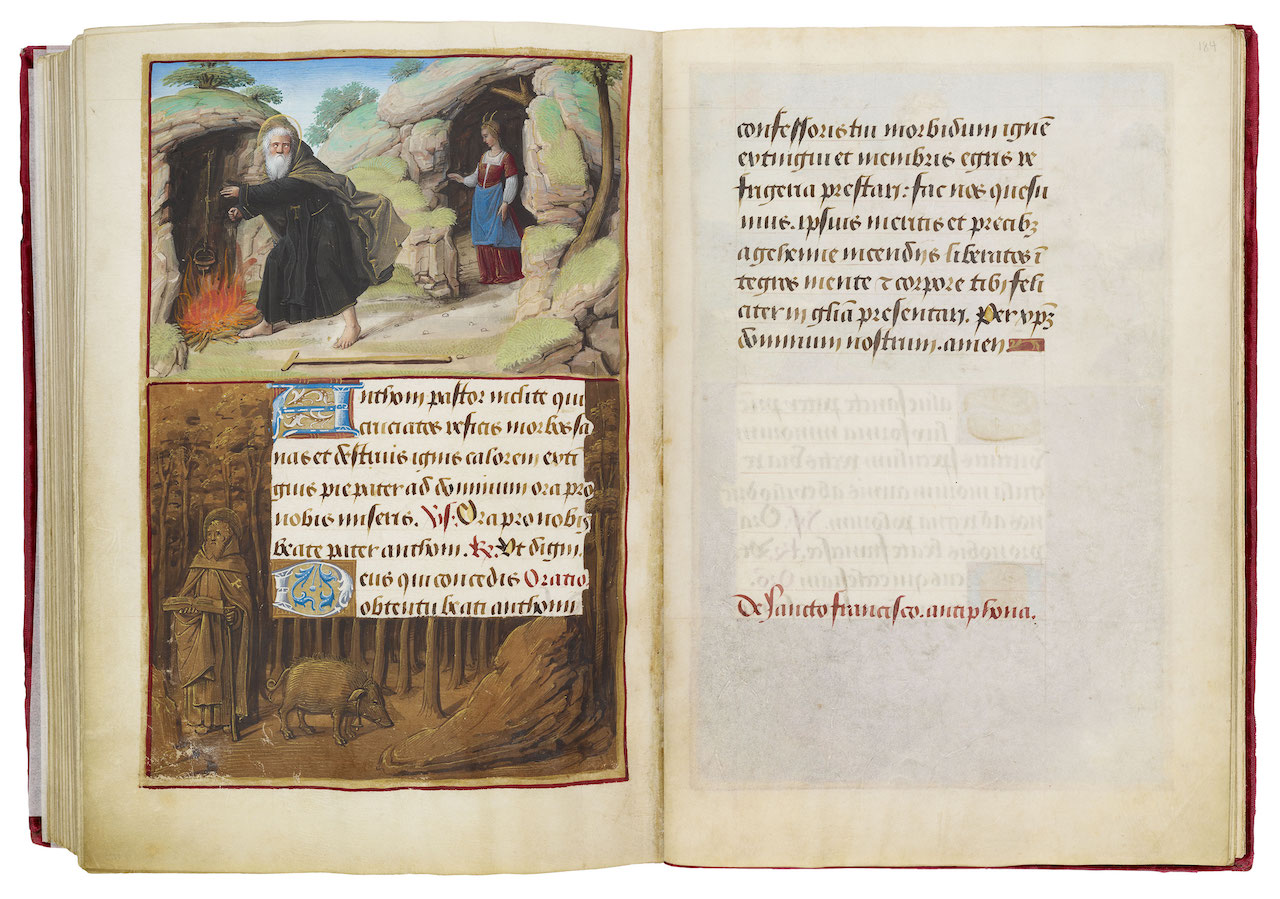 Anthoni pastor inclite qui
cruciatos reficis morbos sa
nas et destruis ignis calorem exti
guis pie pater ad dominum ora pro
nobis miseris. Vs. Ora pro nobis
beate pater anthoni. Re. Ut digni.
Deus qui concedis Oratio
obtentu beati anthonii
184
confessoris tui morbidum ignē
extingui et membris egris re
frigeria prestari: fac nos quesu
mus. ipsius meritis et precibꝫ
agehenne incendiis liberatos ī
tegros mente ⁊ corpore tibi feli
citer in gliā presentari. Per xpꝫ
dominum nostrum. amen
De sancto francisco. antiphona.